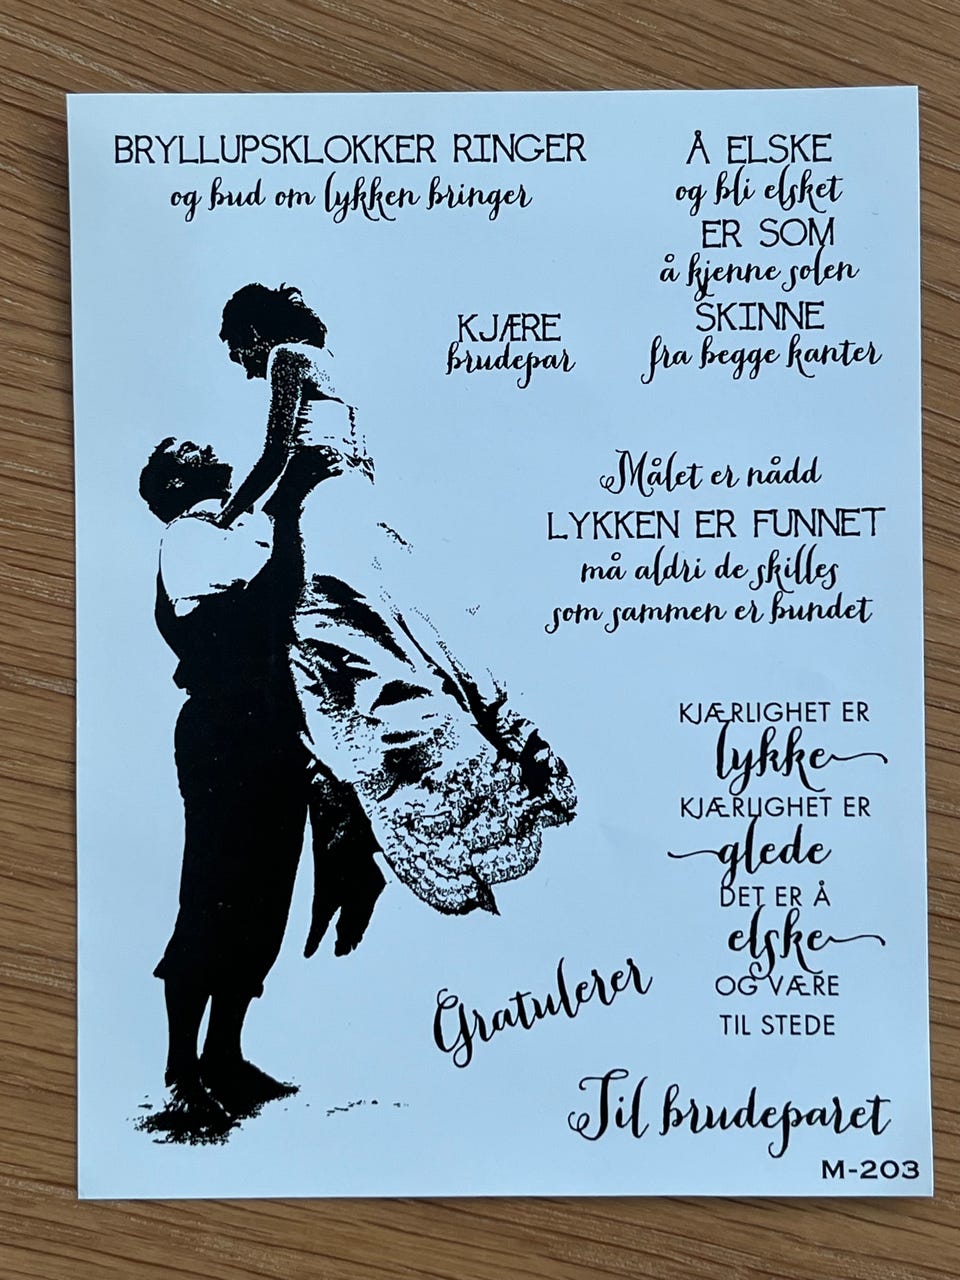 BRYLLUPSKLOKKER RINGER
og bud om lykken bringer
Å ELSKE
og bli elsket
ER SOM
å kjenne solen
SKINNE
fra begge kanter
KJÆRE
brudepar
Målet er nådd
LYKKEN ER FUNNET
må aldri de skilles
som sammen er bundet
KJÆRLIGHET ER
lykke
KJÆRLIGHET ER
glede
DET ER Å
elske
OG VÆRE
TIL STEDE
Gratulerer
Til brudeparet
M-203